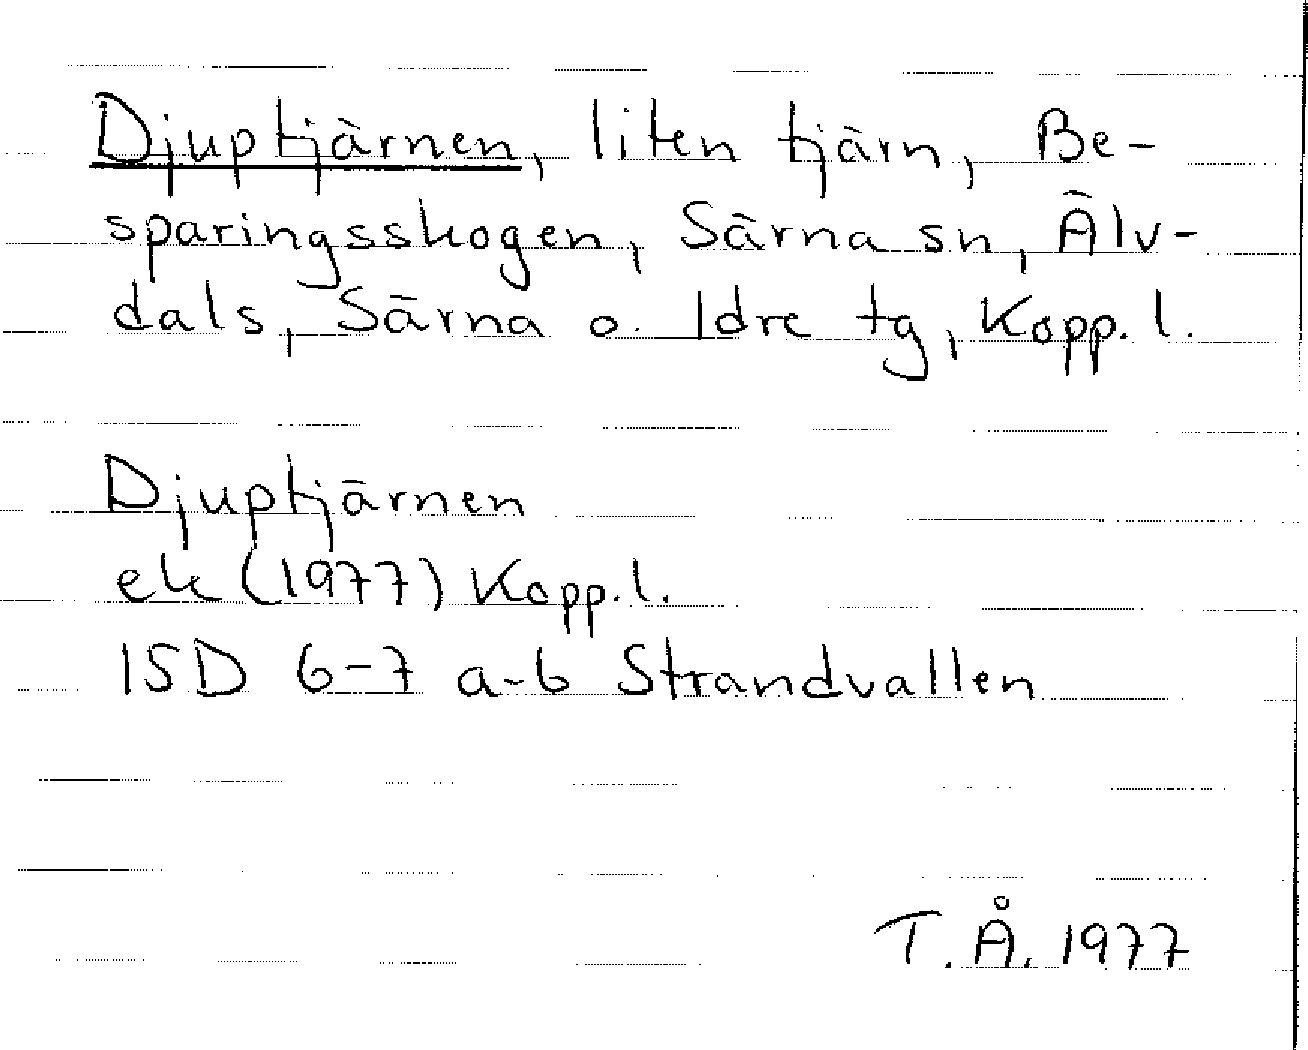 Djuptjärnen, liten tjärn, Be-
sparingsskogen, Särna sn, Älv-
dals, Särna o. Idre tg, Kopp. l.
Djuptjärnen
ek (1977) Kopp. l.
15D 6-7 a-b Strandvallen
T.Å. 1977